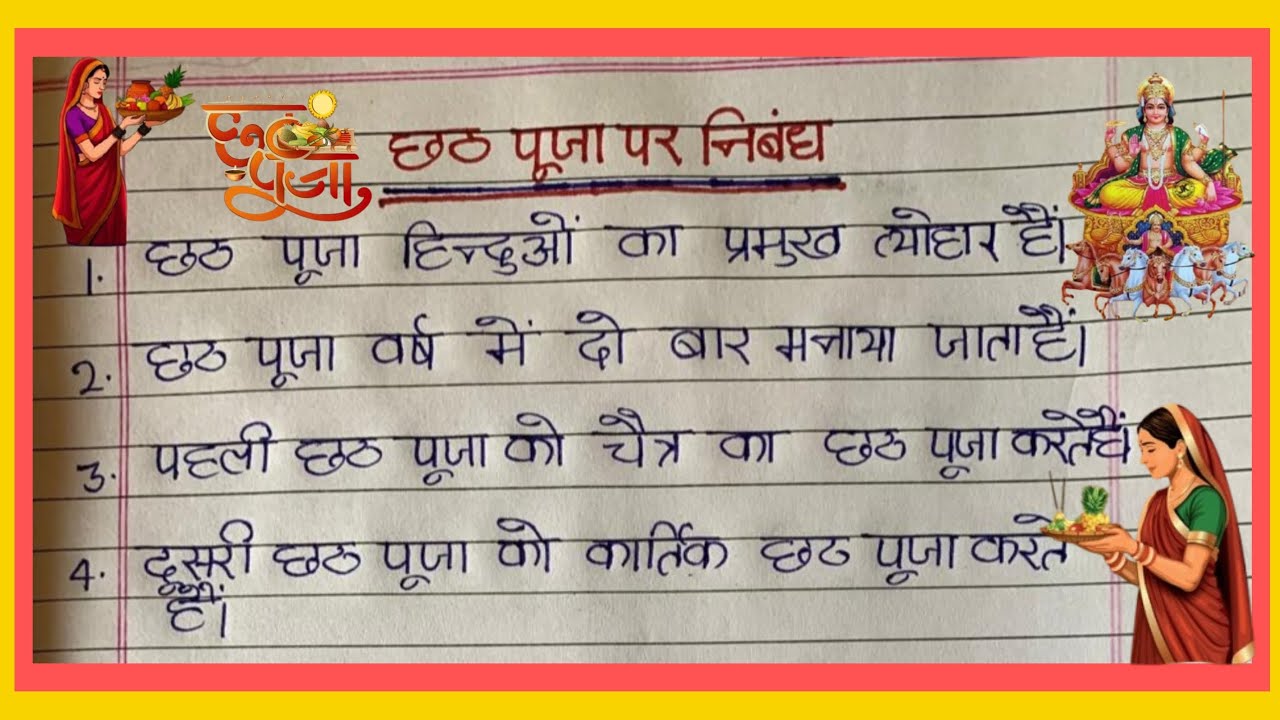 छठ पूजा
छठ पूजा पर निबंध
1. छठ पूजा हिन्दुओं का प्रमुख त्योहार हैं।
2. छठ पूजा वर्ष में दो बार मनाया जाता हैं।
3. पहली छठ पूजा को चैत्र का छठ पूजा करते हैं।
4. दूसरी छठ पूजा को कार्तिक छठ पूजा करते
हैं।